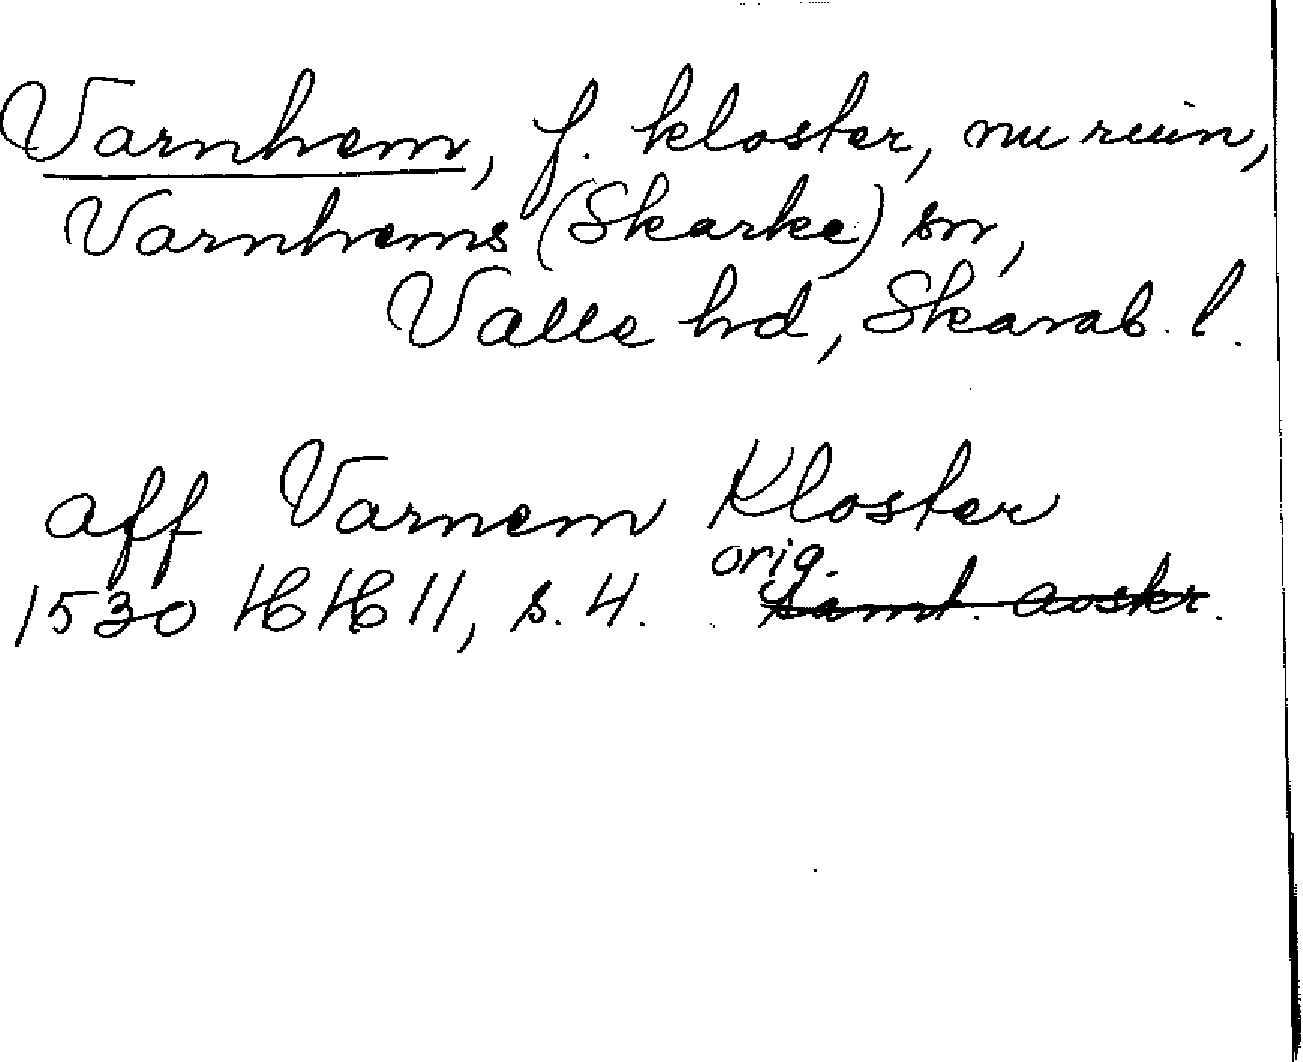 Varnhem, f. kloster, nu ruin,
Varnhems (Skarke) sn,
Valle hd, Skarab. l.
aff Varnem Kloster
orig.
1530 HH 11, s. 4. samt. avskr.